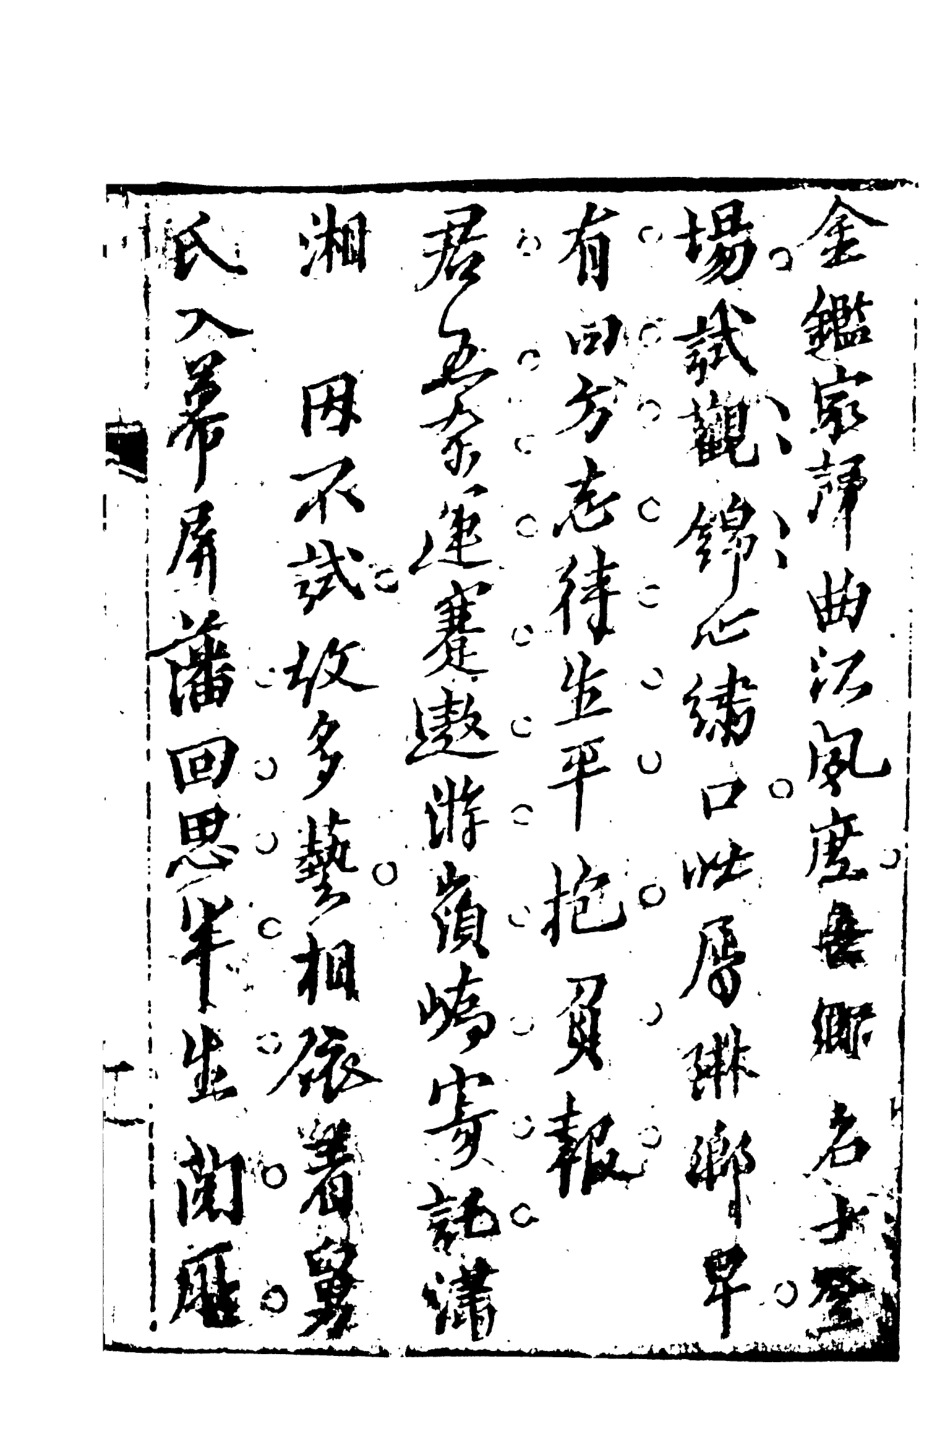 金鑑家聲曲江風度吾鄉名士登
場試觀錦心繡口壯厲琳瑯早
有回方志待生平抱負報
君奈運蹇遨游嶺嶠寄託瀟
湘 因不試故多藝相依署舅
氏入幕屏藩回思半生閱歷
十一